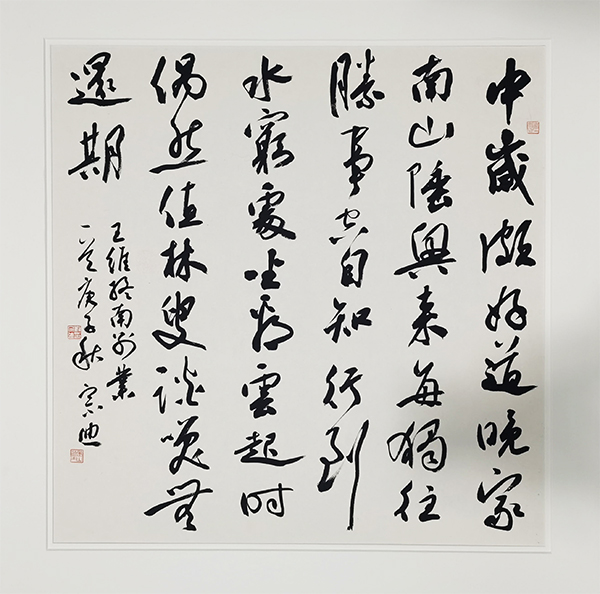 中歲頗好道晚家
南山陲興來每獨往
勝事空自知行到
水窮處坐看雲起时
偶然值林叟談笑無
還期
王維終南別業
一首庚子秋